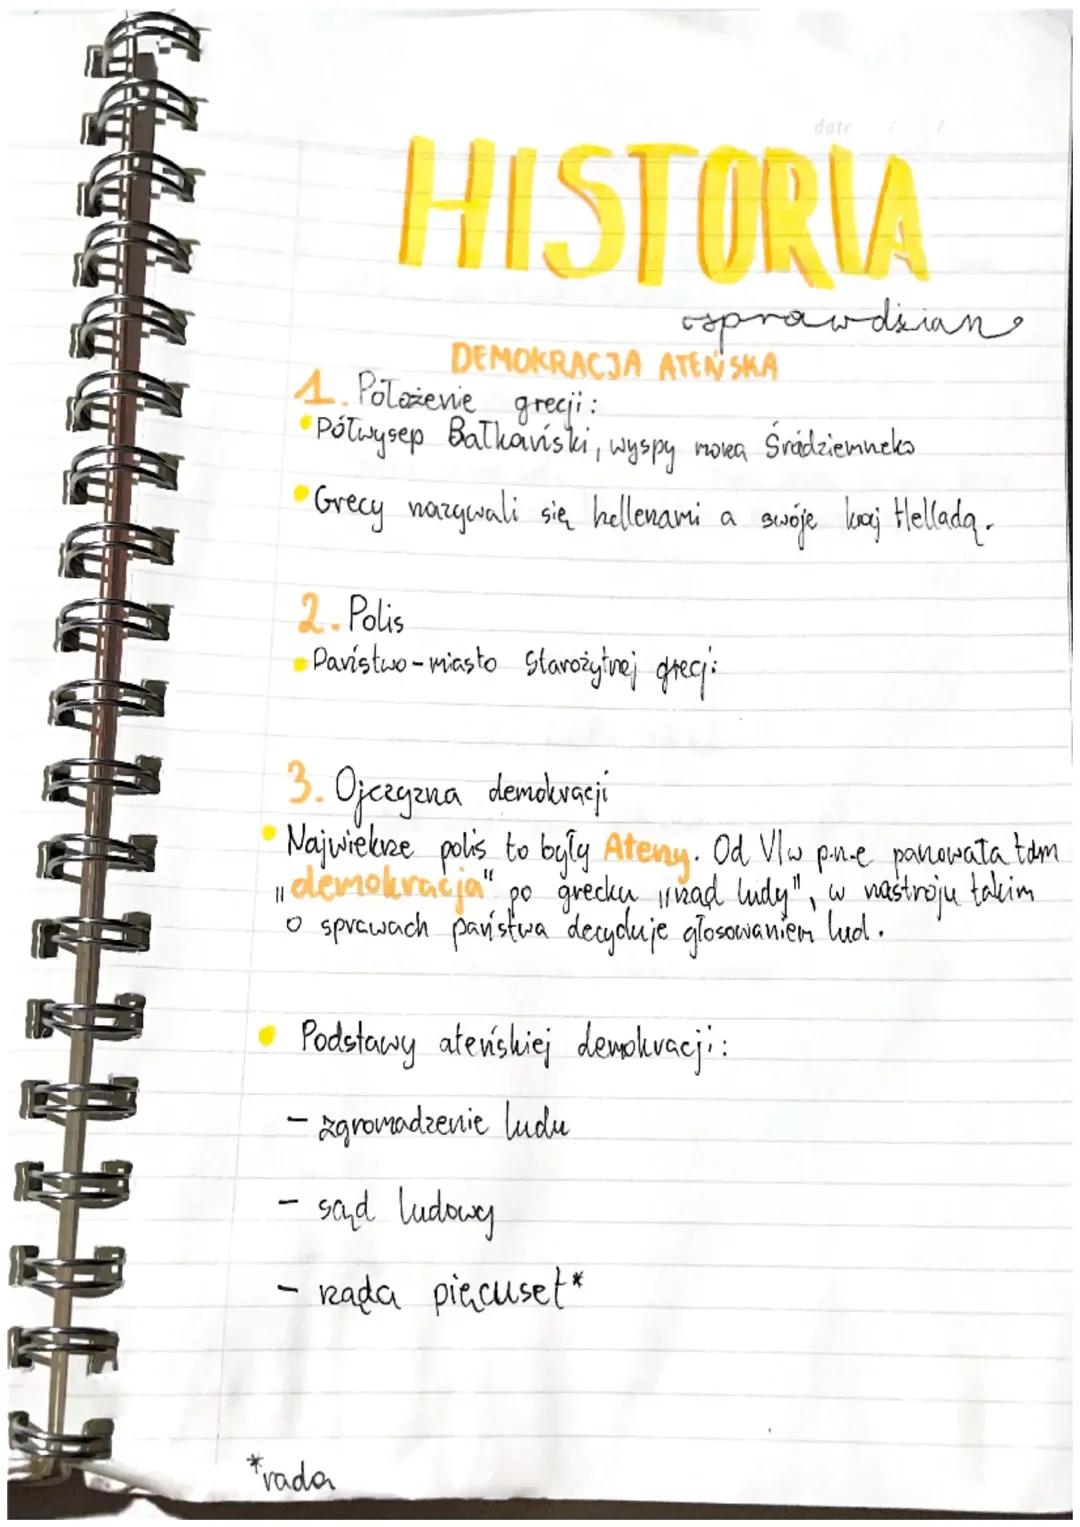 date / /
HISTORIA
sprawdzian
DEMOKRACJA ATEŃSKA
1. Położenie grecji:
Półwysep Bałkański, wyspy morza Śródziemneko
Grecy nazywali się hellenami a swóje kraj Helladą.
2. Polis
Państwo-miasto Starożytnej grecji
3. Ojczyzna demokracji
Najwieksze polis to były Ateny. Od VI w p.n.e panowała tam
"demokracja" po grecku "rząd ludy", w nastroju takim
o sprawach państwa decyduje głosowaniem lud.
Podstawy ateńskiej demokracji:
- zgromadzenie ludu
- sąd ludowy
- rząda pięcuset*
*rada